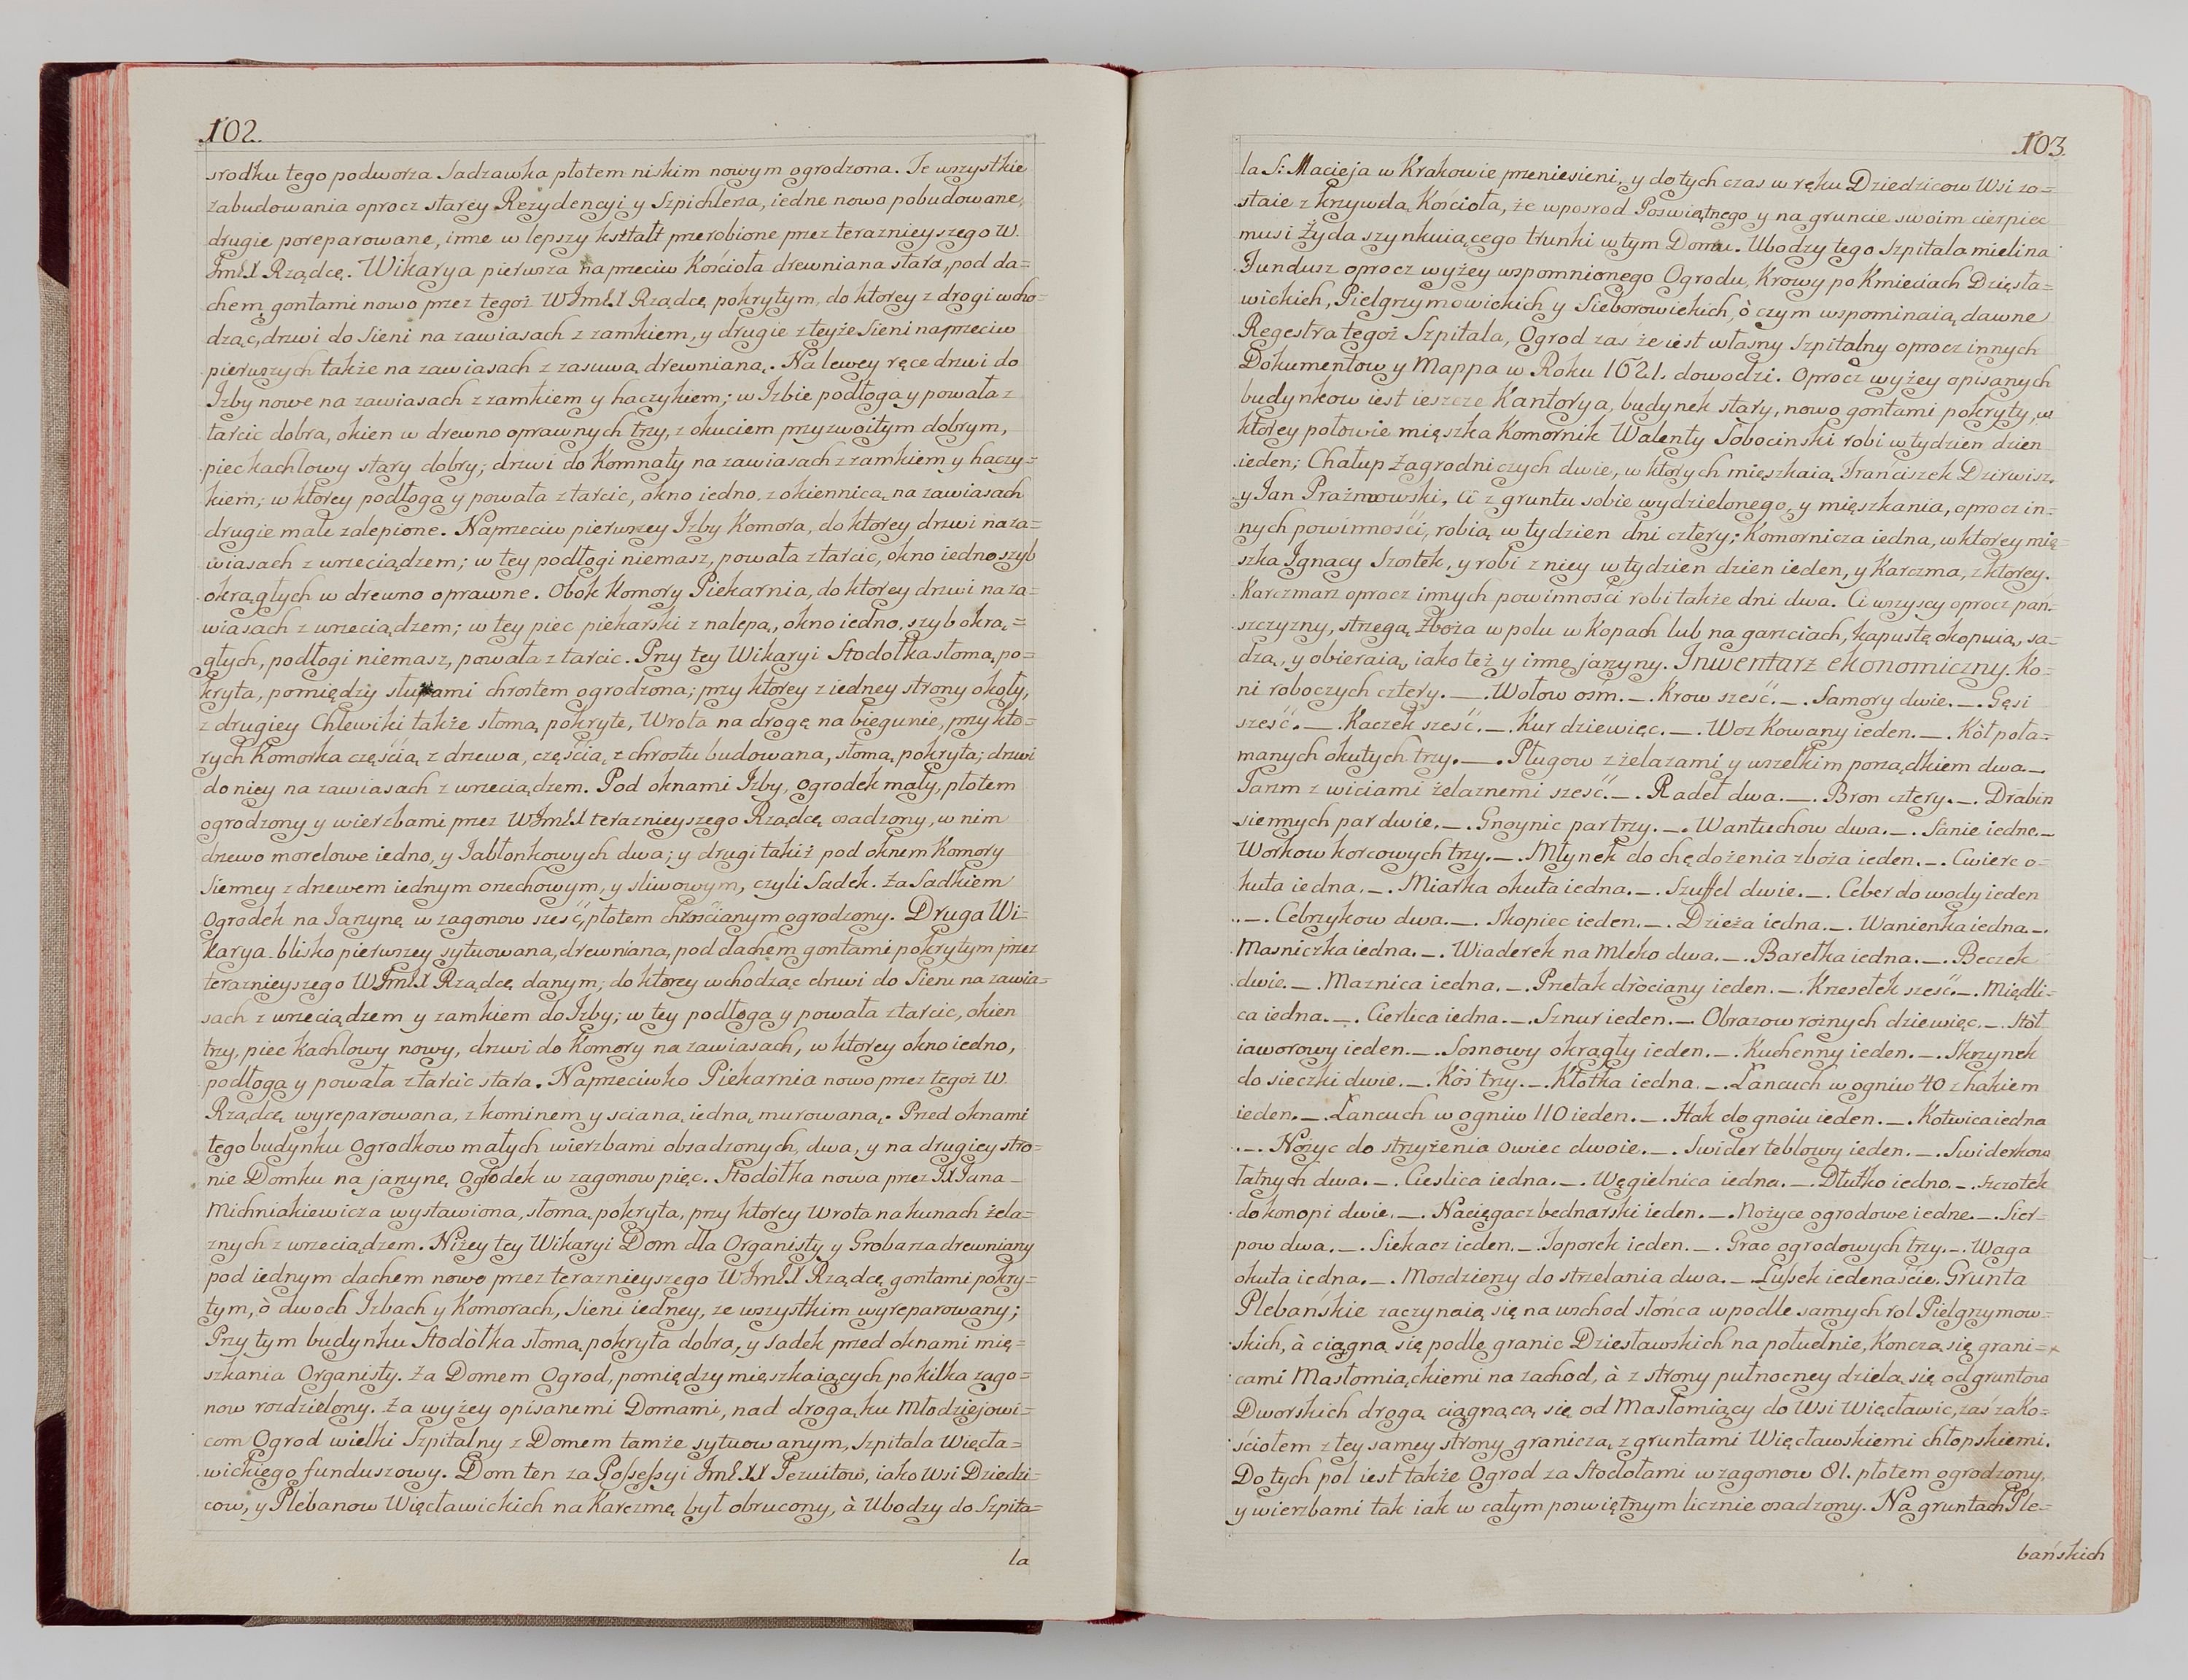 102.
srodku tego podworza Sadzawka płotem niskim nowym ogrodzona. Te wszystkie
zabudowania oprocz starey Rezydencyi y Szpichlerza, iedne nowo pobudowane,
drugie poreparowane, inne w lepszy kształt przerobione przez teraznieyszego W.
Rządcę. Wikarya pierwsza naprzeciw Kościoła drewniana stara, pod da=
chem gontami nowo przez tegoż Rządcę pokrytym, do ktorey z drogi wcho=
dząc, drzwi do Sieni na zawiasach z zamkiem, y drugie z teyże Sieni naprzeciw
pierwszych także na zawiasach z zasuwą drewnianą. Na lewey ręce drzwi do
Izby nowe na zawiasach z zamkiem y haczykiem; w Izbie podłoga y powała z
tarcic dobra, okien w drewno oprawnych trzy, z okuciem przyzwoitym dobrym,
piec kachlowy stary dobry; drzwi do Komnaty na zawiasach z zamkiem y haczy=
kiem; w ktorey podłoga y powała z tarcic, okno iedno, z okiennicą na zawiasach
drugie małe zalepione. Naprzeciw pierwszey Izby Komora, do ktorey drzwi na za=
wiasach z wrzeciądzem; w tey podłogi niemasz, powała z tarcic, okno iedno szyb
okrągłych w drewno oprawne. Obok Komory Piekarnia, do ktorey drzwi na za=
wiasach z wrzeciądzem; w tey piec piekarski z nalepą, okno iedno, szyb okrą=
głych, podłogi niemasz, powała z tarcic. Przy tey Wikaryi Stodołka słomą po=
kryta, pomiędzy słupami chrostem ogrodzona; przy ktorey z iedney strony okoły,
z drugiey Chlewiki także słomą pokryte, Wrota na drogę na biegunie, przy kto=
rych Komorka częścią z drzewa, częścią z chrostu budowana, słomą pokryta; drzwi
do niey na zawiasach z wrzeciądzem. Pod oknami Izby, ogrodek mały, płotem
ogrodzony y wierzbami przez teraznieyszego Rządcę osadzony, w nim
drzewo morelowe iedno, y Jabłonkowych dwa; y drugi takiż pod oknem Komory
Sienney z drzewem iednym orzechowym, y sliwowym, czyli Sadek. Za Sadkiem
Ogrodek na Jarzynę w zagonow sześć, płotem chrościanym ogrodzony. Druga Wi=
karya blisko pierwszey sytuowana, drewniana, pod dachem gontami pokrytym przez
teraznieyszego Rządcę danym; do ktorey wchodząc drzwi do Sieni na zawia=
sach z wrzeciądzem y zamkiem do Izby; w tey podłoga y powała z tarcic, okien
trzy, piec Kachlowy nowy, drzwi do Komory na zawiasach, w ktorey okno iedno,
podłoga y powała z tarcic stara. Naprzeciwko Piekarnia nowo przez tegoż W.
Rządcę wyreparowana, z kominem y scianą iedną murowaną. Przed oknami
tego budynku Ogrodkow małych wierzbami obsadzonych dwa, y na drugiey stro=
nie Domku na jarzynę Ogrodek w zagonow pięc. Stodòłka nowa przez Jana
Michniakiewicza wystawiona, słomą pokryta, przy ktorey Wrota na kunach żela=
znych z wrzeciądzem. Niżey tey Wikaryi Dom dla Organisty y Grobarza drewniany
pod iednym dachem nowo przez teraznieyszego Rządcę gontami pokry=
tym, ò dwoch Izbach y Komorach, Sieni iedney, ze wszystkim wyreparowany;
Przy tym budynku Stodòłka słomą pokryta dobra, y Sadek przed oknami mię=
szkania Organisty. Za Domem Ogrod, pomiędzy mięszkaiących po kilka zago=
now rozdzielony. Za wyżey opisanemi Domami, nad drogą ku Młodziejowi=
com Ogrod wielki Szpitalny z Domem tamże sytuowanym, Szpitala Więcła=
wickiego funduszowy. Dom ten za Possessyi Jezuitow, iako Wsi Dziedzi=
cow, y Plebanow Więcławickich na Karczmę był obrucony, à Ubodzy do Szpita=
la
103.
la S: Macieja w Krakowie przeniesieni, y do tych czas w ręku Dziedzicow Wsi zo=
staie z krzywdą Kościoła, że wposrod Poswiętnego y na gruncie swoim cierpiec
musi Żyda szynkuiącego trunki w tym Domu. Ubodzy tego Szpitala mieli na
Fundusz oprocz wyżey wspomnionego Ogrodu, Krowy po Kmieciach Dzięsła=
wickich, Pielgrzymowickich y Sieborowickich, ò czym wspominaią dawne
Regestra tegoż Szpitala, Ogrod zas że iest własny Szpitalny oprocz innych
Dokumentow y Mappa w Roku 1621. dowodzi. Oprocz wyżey opisanych
budynkow iest ieszcze Kantorya, budynek stary, nowo gontami pokryty, w
ktorey połowie mięszka Komornik Walenty Sobocinski robi w tydzien dzien
ieden; Chałup Zagrodniczych dwie, w ktorych mięszkaią Franciszek Dzirwisz,
y Jan Prażmowski, Ci z gruntu sobie wydzielonego, y mięszkania, oprocz in=
nych powinności, robią w tydzien dni cztery; Komornicza iedna, w ktorey mię=
szka Ignacy Szostek, y robi z niey w tydzien dzien ieden, y Karczma, z ktorey.
Karczmarz oprocz innych powinności robi także dni dwa. Ci wszyscy oprocz pań=
szczyzny, strzegą Zboża w polu w Kopach lub na garsciach, kapustę okopuią, sa=
dzą, y obieraią, iako też y inne jarzyny. Inwentarz ekonomiczny. Ko=
ni roboczych cztery. _. Wołow osm. _. Krow sześć. _. Samory dwie. _. Gęsi
sześć. _. Kaczek sześć. _. Kur dziewięc. _. Woz Kowany ieden. _. Kół poła=
manych okutych trzy. _. Pługow z żelazami y wszelkim porządkiem dwa. _.
Jarzm z wiciami żelaznemi sześć. _. Radeł dwa. _. Bron cztery. _. Drabin
siennych par dwie. _. Gnoynic par trzy. _. Wantuchow dwa. _. Sanie iedne. _
Workow korcowych trzy. _. Młynek do chędożenia zboża ieden. _. Cwierc o=
kuta iedna. _. Miarka okuta iedna. _. Szuffel dwie. _. Ceber do wody ieden
.. _. Cebrzykow dwa. _. Skopiec ieden. _. Dzieża iedna. _. Wanienka iedna. _.
Masniczka iedna. _. Wiaderek na Mleko dwa. _. Barełka iedna. _. Beczek
dwie. _. Maznica iedna. _. Przetak dròciany ieden. _. Krzesełek sześć. _. Międli=
ca iedna. _. Cierlica iedna. _. Sznur ieden. _. Obrazow rożnych dziewięc. _. Stół
iaworowy ieden. _. Sosnowy okrągły ieden. _. Kuchenny ieden. _. Skrzynek
do sieczki dwie. _. Kòs trzy. _. Kłotka iedna. _. Łancuch w ogniw 40 z hakiem
ieden. _. Łancuch w ogniw 110 ieden. _. Hak do gnoiu ieden. _. Kotwica iedna
.. _. Nożyc do strzyżenia owiec dwoie. _. Swider teblowy ieden. _. Swiderkow
łatnych dwa. _. Cieslica iedna. _. Węgielnica iedna. _. Dłutko iedno. _. Szczotek
do konopi dwie. _. Nacięgacz bednarski ieden. _. Nożyce ogrodowe iedne. _. Sier=
pow dwa. _. Siekacz ieden. _. Toporek ieden. _. Grac ogrodowych trzy. _. Waga
okuta iedna. _. Mozdzierzy do strzelania dwa. _. Lusek iedenaście. Grunta
Plebańskie zaczynaią się na wschod słońca wpodle samych rol Pielgrzymow=
skich, à ciągną się podle granic Dziesławskich na południe, Konczą się grani=
cami Masłomiąckiemi na zachod, à z strony pułnocney dzielą się od gruntow
Dworskich drogą ciągnącą się od Masłomiący do Wsi Więcławic, zaś za ko=
ściołem z tey samey strony graniczą z gruntami Więcławskiemi chłopskiemi.
Do tych pol iest także Ogrod za Stodołami w zagonow 81. płotem ogrodzony,
y wierzbami tak iak w całym poswiętnym licznie osadzony. Na gruntach Ple=
bańskich